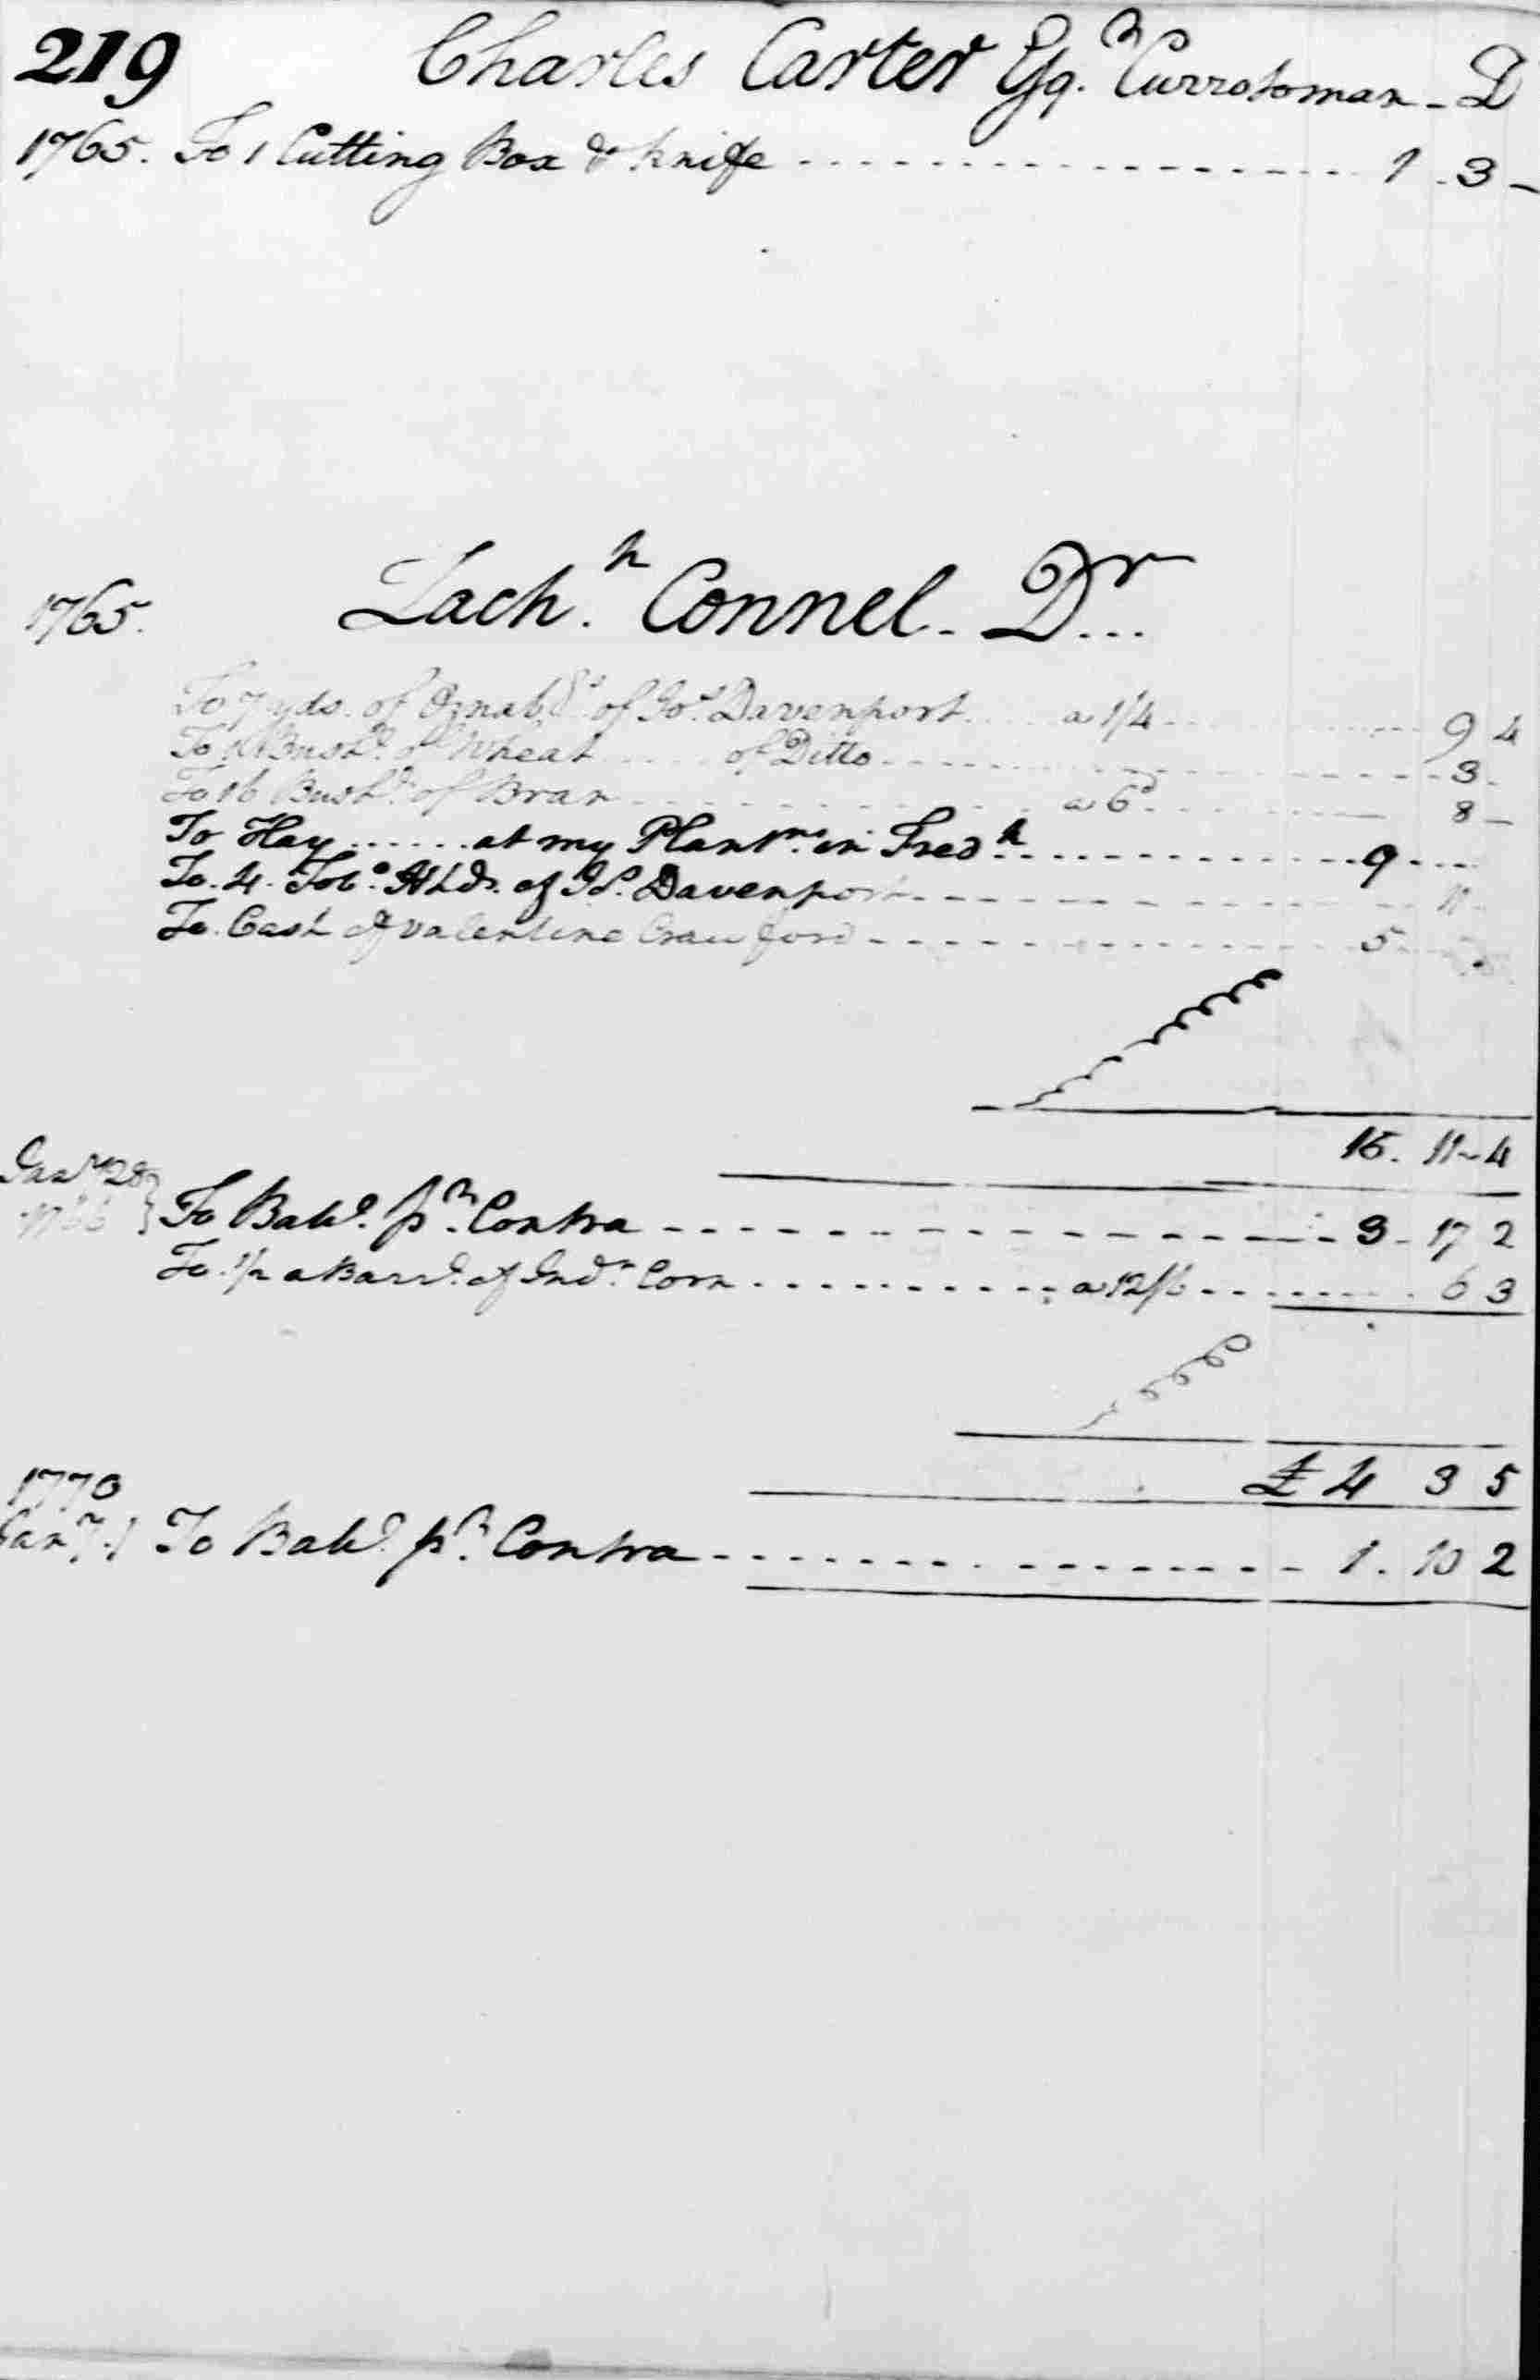 219 Charles Carter Esqr. Currotoman - D
1765. To 1 Cutting Box & Knife 1 . 3 -
1765. Lachn. Connel. Dr
To 7 yds. of Oznabgs of Jos. Davenport a 1/4 9 4
To 1 Bushl. of Wheat of Ditto 3
To 16 Bushls. of Bran a 6d 8 -
To Hay at my Plantns. in Fredk 9
To 4 Tobo. Hhds. of Js. Davenport 11
To Cash of Valentine Crawford 5
15. 11 4
Jany 28
1766 } To Balce. pr. Contra 3 - 17 2
To 1/2 a Barrl. of Indn. Corn a 12/6 6 3
£ 4 3 5
1770
Jany. 1 To Balce. pr. Contra 1 . 10 2